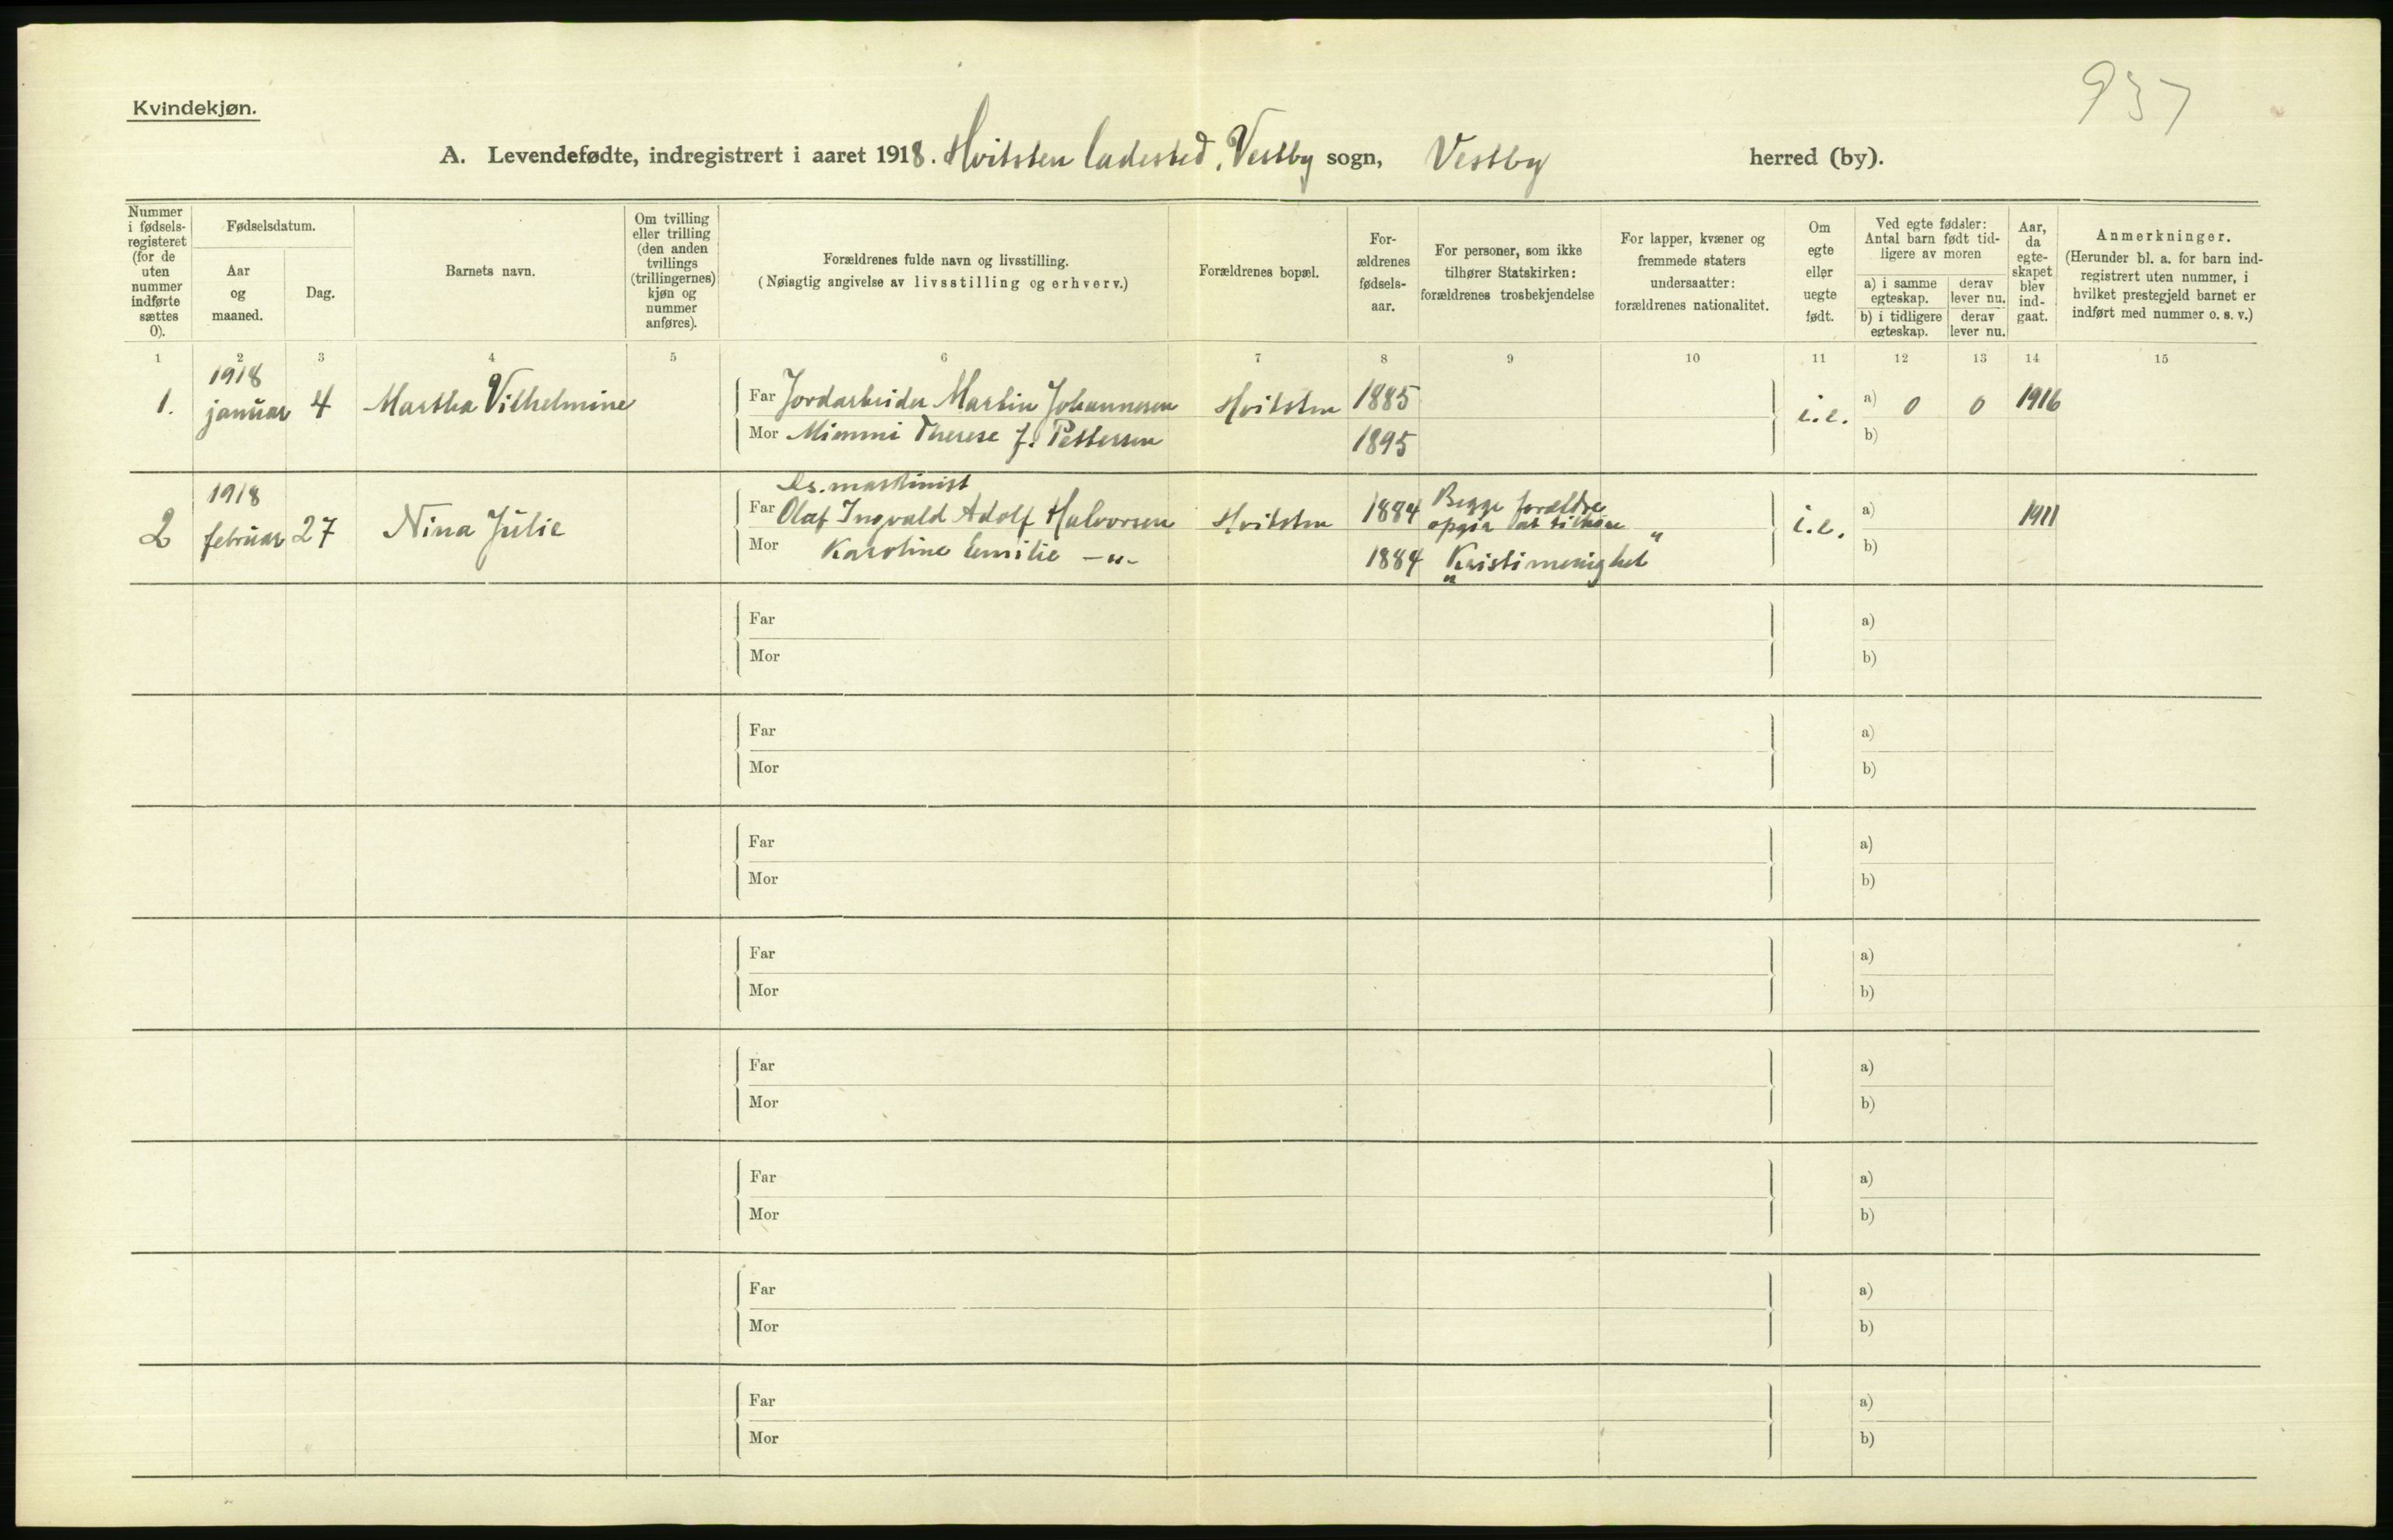 937
Kvindekjøn.
A. Levendefødte, indregistrert i aaret 1918. Hvitsten ladested, Vestby sogn, Vestby herred (by).
Nummer i fødsels-registeret (for de uten nummer indførte sættes 0).
Fødselsdatum.
Aar og maaned.
Dag.
Barnets navn.
Om tvilling eller trilling (den anden tvillings (trillingernes) kjøn og nummer anføres).
Forældrenes fulde navn og livsstilling.
(Nøiagtig angivelse av livsstilling og erhverv.)
Forældrenes bopæl.
For-ældrenes fødsels-aar.
For personer, som ikke tilhører Statskirken: forældrenes trosbekjendelse
For lapper, kvæner og fremmede staters undersaatter: forældrenes nationalitet.
Om egte eller uegte født.
Ved egte fødsler: Antal barn født tid-ligere av moren
a) i samme egteskap.
derav lever nu.
b) i tidligere egteskap.
derav lever nu.
Aar, da egte-skapet blev ind-gaat.
Anmerkninger.
(Herunder bl. a. for barn ind-registrert uten nummer, i hvilket prestegjeld barnet er indført med nummer o. s. v.)
1 2 3 4 5 6 7 8 9 10 11 12 13 14 15
1918
1. januar 4 Martha Vilhelmine Far Jordarbeider Martin Johannesen Hvitsten 1885 i.e. a) 0 0 1916
Mor Mimmi Therese f. Pettersen 1895 b)
1918 Ds. maskinist
2 februar 27 Nina Julie Far Olaf Ingvald Adolf Halvorsen Hvitsten 1884 Begge forældre opgir at tilhøre i.e. a) 1911
Mor Karoline Emilie -"- 1884 "Kristi menighet" b)
Far a)
Mor b)
Far a)
Mor b)
Far a)
Mor b)
Far a)
Mor b)
Far a)
Mor b)
Far a)
Mor b)
Far a)
Mor b)
Far a)
Mor b)